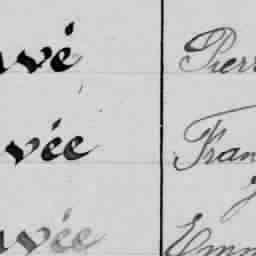 vé Pierr
vée Fran
vée Emm